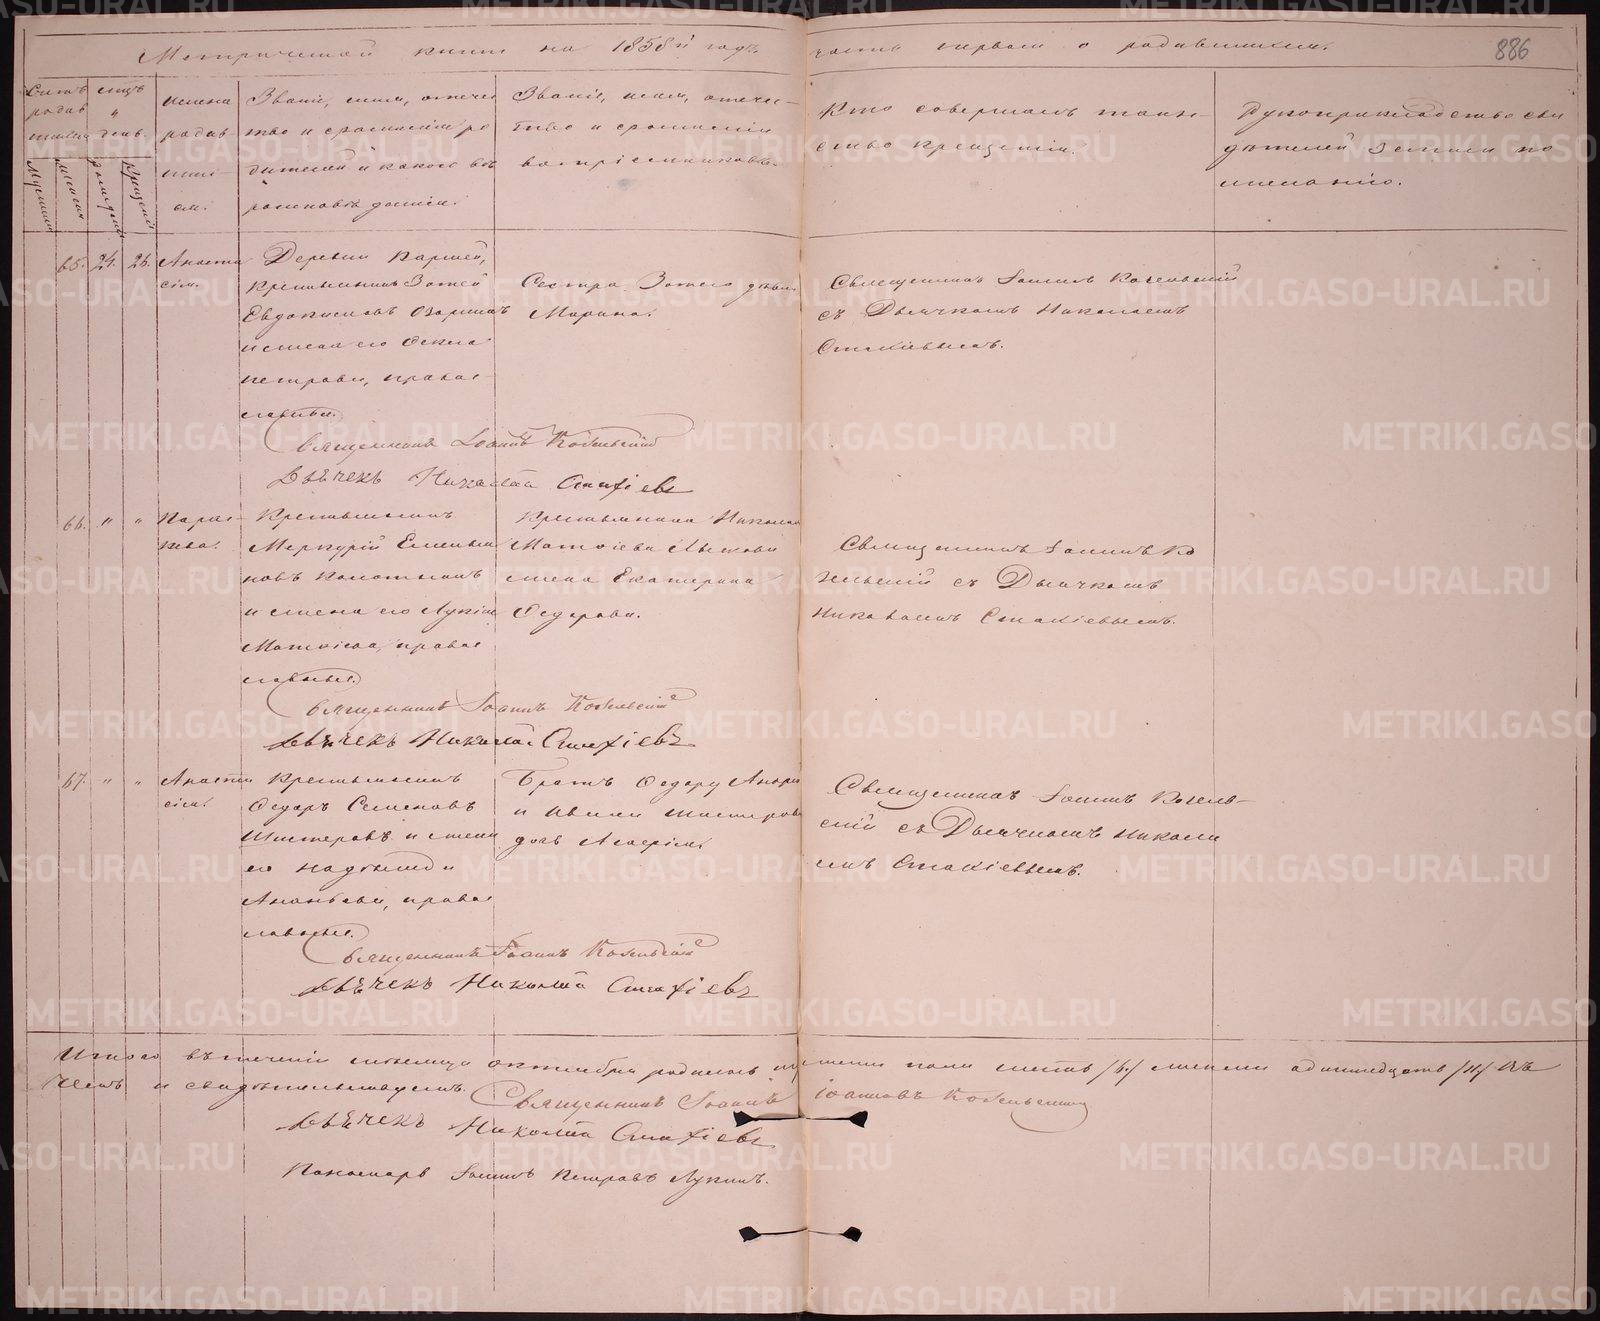 Метрической книги на 1858й годъ. часть первая о родившихся.
886
Счетъ родив шихся
мцъ и день.
Имена родив шихся.
Званіе, имя, отечество и фамилія родителей и какого вѣроисповѣданія.
Званіе, имя, отечество и фамилія воспріемниковъ.
Кто совершалъ таинство крещенія.
Рукоприкладство свидѣтелей записи по желанію.
Мужеска
Женска
рожденія
Крещенія
65. 24. 26. Анаста
сія.
Деревни
крестьянинъ Зотей
Евдокимовъ
и жена его Ѳекла
петрова, правос
лавные.
Сестра Зотея дѣвица
Марина.
Священникъ Іоаннъ Козельскій
съ Дьячкомъ Николаемъ
Стахіевымъ.
Священникъ Іоаннъ Козельскій
Дьячекъ Николай Стахіевъ
66. " " Парас-
кева.
Крестьянинъ
Меркурій Емелья
новъ
и жена его Лукія
Матвіева, правос
лавные.
Крестьянина Николая
Матвіева
жена Екатерина
Ѳедорова.
Священникъ Іоаннъ Ко
зельскій съ Дьячкомъ
Николаемъ Стахіевымъ.
Священникъ Іоаннъ Козельскій
Дьячекъ Николай Стахіевъ
67. " " Анаста
сія.
Крестьянинъ
Ѳедоръ Семеновъ
Шистеровъ и жена
его Надѣжда
Ананьева, правос
лавные.
Братъ Ѳедору Андрей
Шистеров
дочь
Священникъ Іоаннъ Козель-
скій съ Дьячкомъ Никола
емъ Стахіевымъ.
Священникъ Іоаннъ Козельскій
Дьячекъ Николай Стахіевъ
Итого въ теченіи месяца октября родилось мужеска пола шесть /6./ женска одиннадцать /11/ Въ
чемъ и свидѣтельствуемъ.
Священникъ Іоаннъ Іоанновъ Козельскій
Дьячекъ Николай Стахіевъ
Пономарь Іоаннъ Петровъ Лукинъ.
METRIKI.GASO-URAL.RU